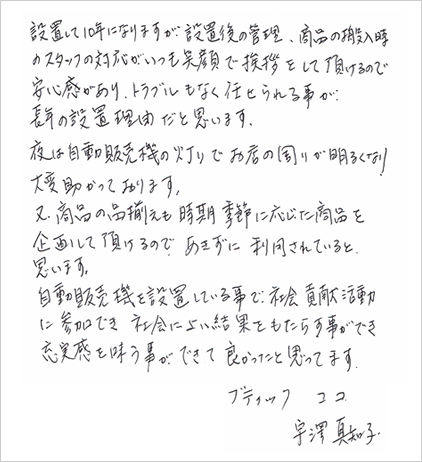 設置して10年になりますが設置後の管理、商品の搬入時
のスタッフの対応がいつも笑顔で挨拶をして頂けるので
安心感があり、トラブルもなく任せられる事が、
長年の設置理由だと思います。
夜は自動販売機の灯りでお店の周りが明るくなり
大変助かっております。
又、商品の品揃えも時期季節に応じた商品を
企画して頂けるので、あきずに利用されていると、
思います。
自動販売機を設置している事で、社会貢献活動
に参加でき社会によい結果をもたらす事ができ
充実感を味う事ができて良かったと思ってます。
ブティック ココ
宇澤 真知子